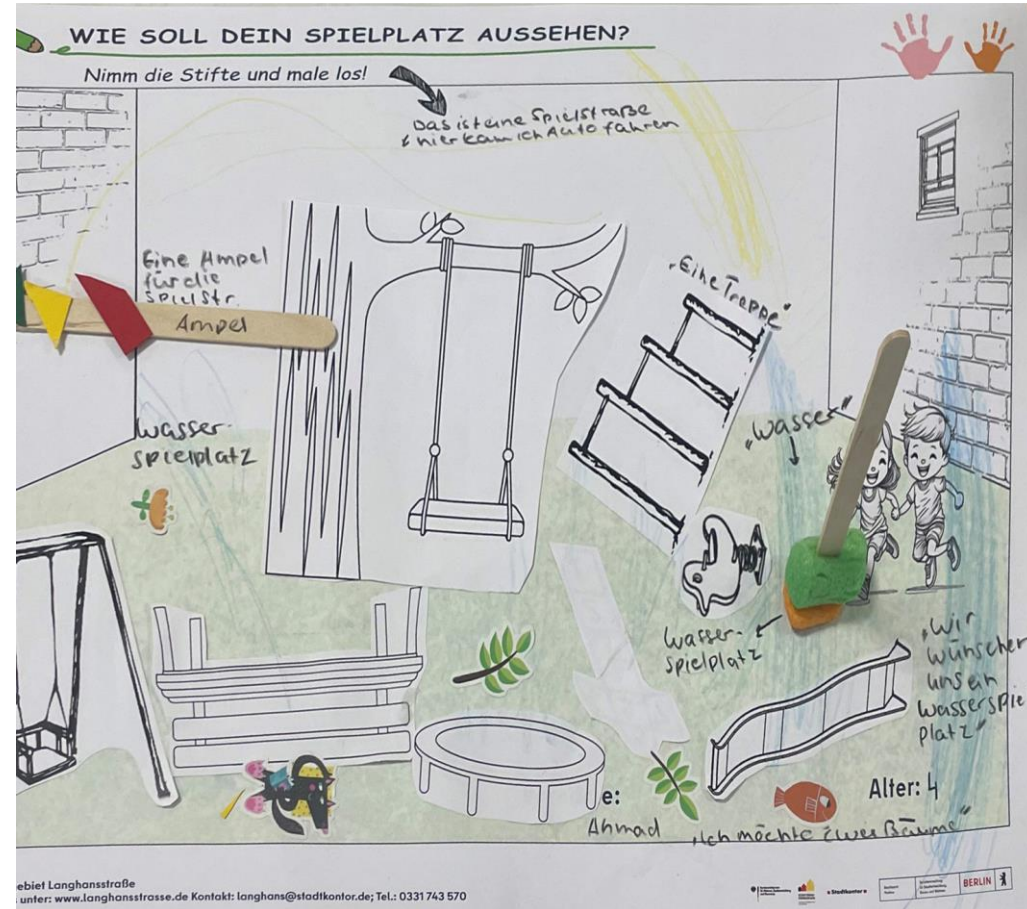 WIE SOLL DEIN SPIELPLATZ AUSSEHEN?
Nimm die Stifte und male los!
Das ist eine Spielstraße
& hier kann ich Auto fahren
Eine Ampel
für die
Spielstr.
Ampel
"Eine Treppe"
Wasser-
spielplatz
"Wasser"
Wasser-
spielplatz
"Wir
wünschen
uns ein
Wasserspie
platz"
e:
Ahmad
Alter: 4
"Ich möchte zwei Bäume"
ebiet Langhansstraße
unter: www.langhansstrasse.de Kontakt: langhans@stadtkontor.de; Tel.: 0331 743 570
Stadtkontor
BERLIN